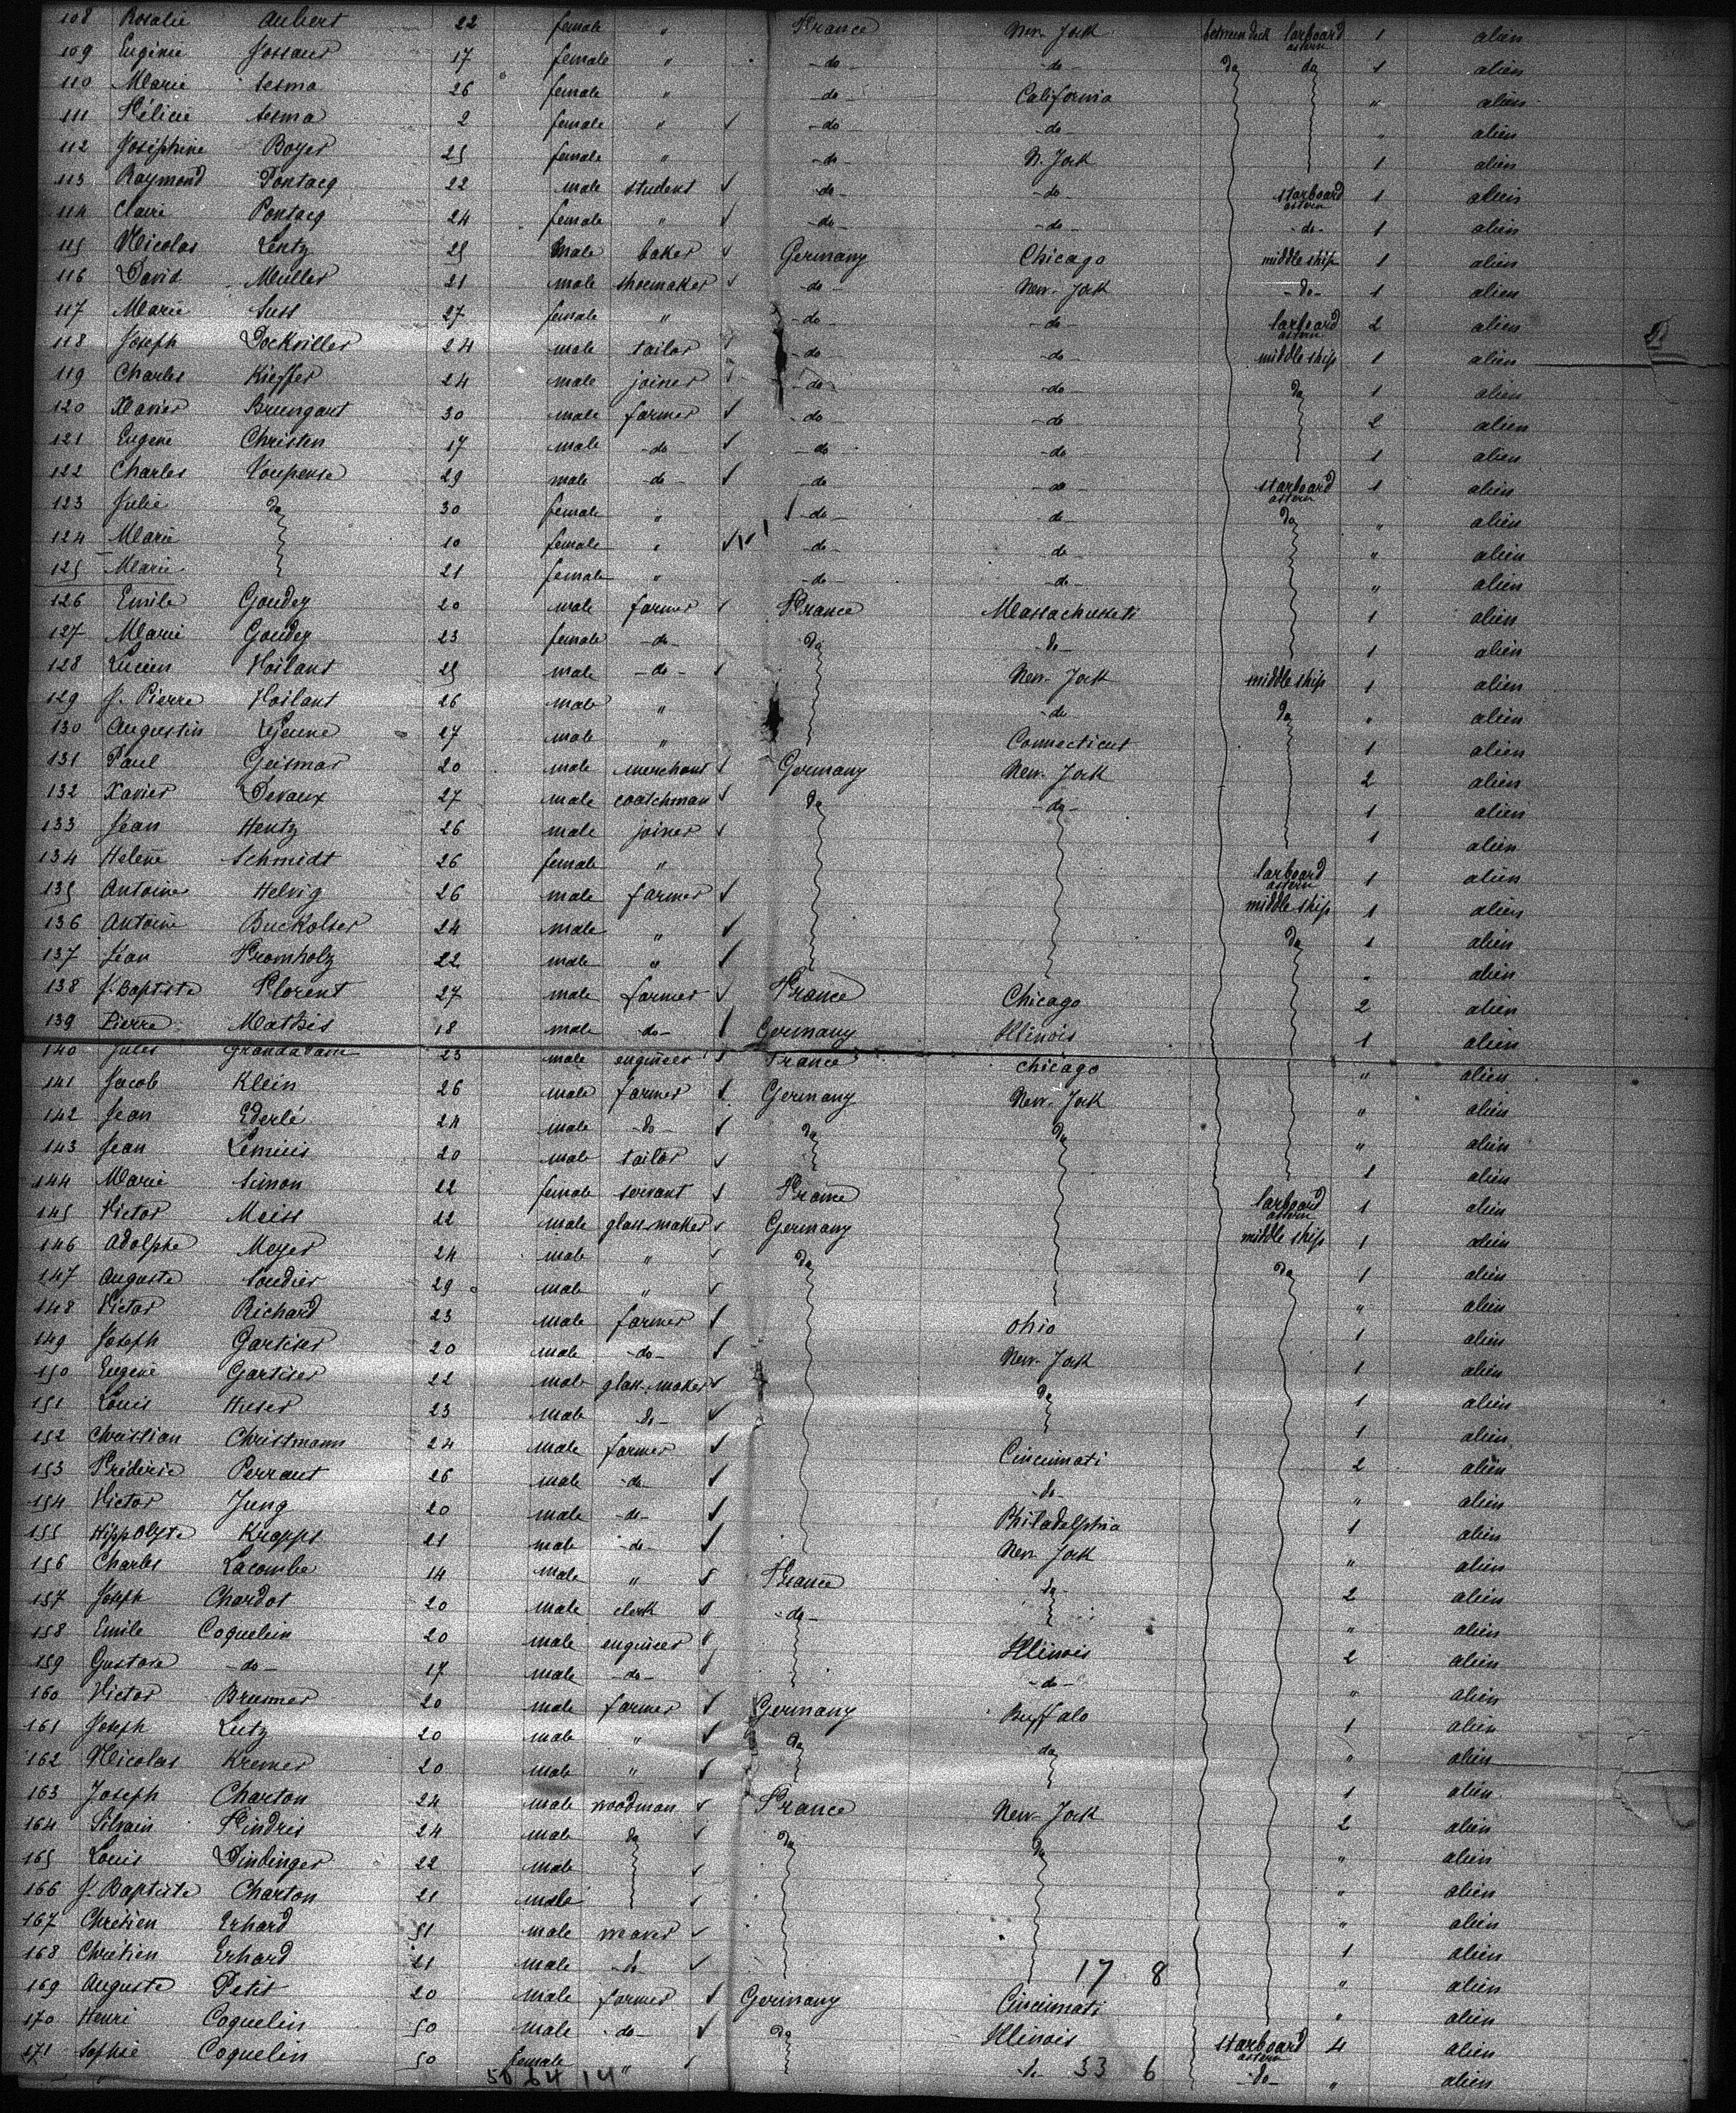 108 Rosalie Aubert 22 female " France New-York between deck larboard astern 1 alien
109 Eugénie 17 female " -do- -do- do do 1 alien
110 Marie Sesma 26 female " -do- California " alien
111 Félicie Sesma 2 female " -do- -do- " alien
112 Joséphine Boyer 25 female " -do- N. York 1 alien
113 Raymond Pontacq 22 male student -do- -do- starboard astern 1 alien
114 Claire Pontacq 24 female " -do- -do- -do- 1 alien
115 Nicolas Lentz 25 male baker Germany Chicago middle ship 1 alien
116 David Müller 21 male shoemaker -do- New-York -do- 1 alien
117 Marie Suss 27 female " -do- -do- larboard astern 2 alien
118 Joseph Dockviller 24 male tailor -do- -do- middle ship 1 alien
119 Charles Kieffer 24 male joiner -do- -do- do 1 alien
120 Xavier Brungart 30 male farmer -do- -do- 2 alien
121 Eugène Christen 17 male -do- -do- -do- 1 alien
122 Charles 29 male -do- -do -do starboard astern 1 alien
123 Julie do 30 female " -do- -do- do " alien
124 Marie 10 female " -do- -do " alien
125 Marie 21 female " -do- -do- " alien
126 Emile Goudey 20 male farmer France Massachusseti 1 alien
127 Marie Goudey 23 female -do- do -do- 1 alien
128 Lucien Voilant 25 male -do- New-York middle ship 1 alien
129 J. Pierre Voilant 26 male " -do- do " alien
130 Augustin Lejeune 27 male " Connecticut 1 alien
131 Paul Geismar 20 male merchant Germany New-York 2 alien
132 Xavier Devaux 27 male coatchman do -do- 1 alien
133 Jean Hentz 26 male joiner 1 alien
134 Helène Schmidt 26 female " larboard astern 1 alien
135 Antoine Helvig 26 male farmer middle ship 1 alien
136 Antoine Buckolzer 24 male " do 1 alien
137 Jean Fromholz 22 male " " alien
138 J. Baptiste Florent 27 male farmer France Chicago 2 alien
139 Pierre Mathis 18 male -do- Germany Illinois 1 alien
140 Jules Grandadam 23 male engineer France chicago " alien
141 Jacob Klein 26 male farmer Germany New-York " alien
142 Jean Ederlé 24 male -do- do do " alien
143 Jean 20 male tailor 1 alien
144 Marie Simon 22 female servant France larboard astern 1 alien
145 Victor Meiss 22 male glass-maker Germany middle ship 1 alien
146 Adolphe Meyer 24 male " do do 1 alien
147 Auguste Soudier 29 male " " alien
148 Victor Richard 23 male farmer ohio 1 alien
149 Joseph Gartiser 20 male -do- New-York 1 alien
150 Eugène Gartiser 22 male glass-maker do 1 alien
151 Louis Huser 23 male do- 1 alien
152 Christian Christmann 24 male farmer Cincinnati 2 alien
153 Fréderic Perraut 26 male -do- -do- " alien
154 Victor Jung 20 male -do- Philadelphia 1 alien
155 Hippolyte Kropps 21 male -do- New-York " alien
156 Charles Lacombe 14 male " France do 2 alien
157 Joseph Chardot 20 male clerk -do- " alien
158 Emile Coquelin 20 male engineer Illinois 2 alien
159 Gustave -do- 17 male -do- -do- " alien
160 Victor Brunner 20 male farmer Germany Buffalo 1 alien
161 Joseph Lutz 20 male " do do " alien
162 Nicolas Kremer 20 male " 1 alien
163 Joseph Charton 24 male woodman France New-York 2 alien
164 Silvain Findris 24 male do do do " alien
165 Louis Dindinger 22 male " alien
166 J. Baptiste Charton 21 male " alien
167 Chrétien Erhard 51 male 1 alien
168 Chrétien Erhard 21 male -do- 17 8 " alien
169 Auguste Petit 20 male farmer Germany Cincinnati " alien
170 Henri Coquelin 50 male -do- do Illinois starboard astern 4 alien
171 Sophie Coquelin 50 female " -do- 33 6 -do- " alien
50 64 14